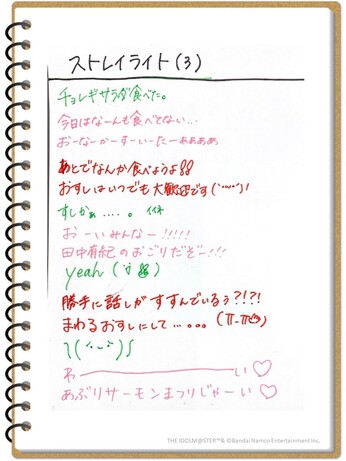 ストレイライト(3)
チョレギサラダ食べた。
今日はなーんも食べとない...
おーなーかーすーいーたーぁぁぁぁ
あとでなんか食べようよ!!
おすしはいつでも大歓迎です(˙꒳˙)!
すしかぁ.... イイネ
おーいみんなー!!!!!
田中有紀のおごりだぞー!!!
yeah
勝手に話しがすすんでいるぅ?!?!
まわるおすしにして...。。。(π_π)
わーーーーーーーい♡
あぶりサーモンまつりじゃーい♡
THE IDOLM@STER™& ©Bandai Namco Entertainment Inc.